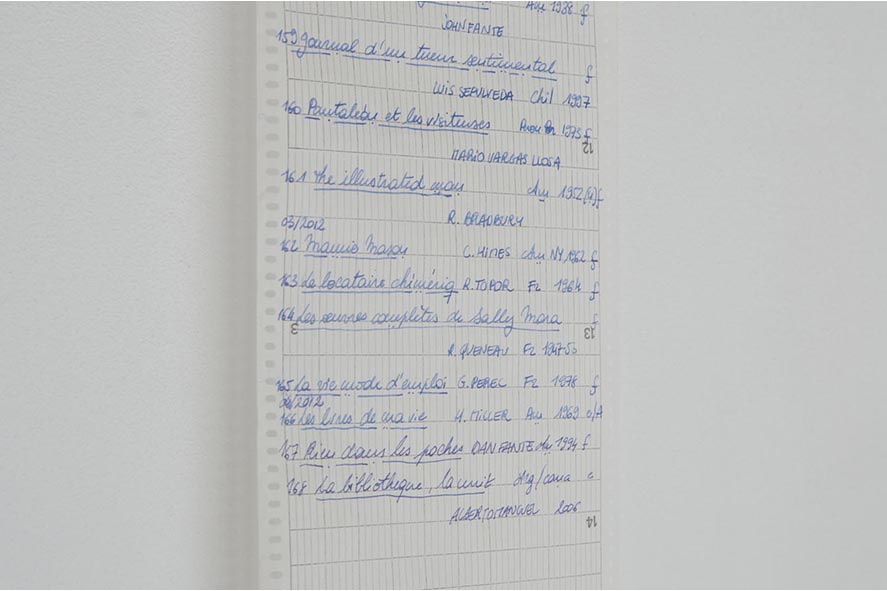 Am 1938 f
JOHN FANTE
159 Journal d'un tueur sentimental f
LUIS SEPULVEDA Chil 1997
160 Pantaleon et les visiteuses 1973 f
12
MARIO VARGAS LLOSA
161 The illustrated man Am 1952 f
R. BRADBURY
03/2012
162 Mamie Mason C. HIMES Am NY 1962 f
163 Le locataire chimériq R. TOPOR Fr 1964 f
164 Les œuvres complètes de Sally Mara f
3 13
R. QUENEAU Fr 1947-55
165 La vie mode d'emploi G. PEREC Fr 1978 f
04/2012
166 Les livres de ma vie H. MILLER Am 1969 e/A
167 Rien dans les poches DAN FANTE Am 1994 f
168 La bibliothèque, la nuit Arg/cana e
ALBERTO MANGUEL 2006
14